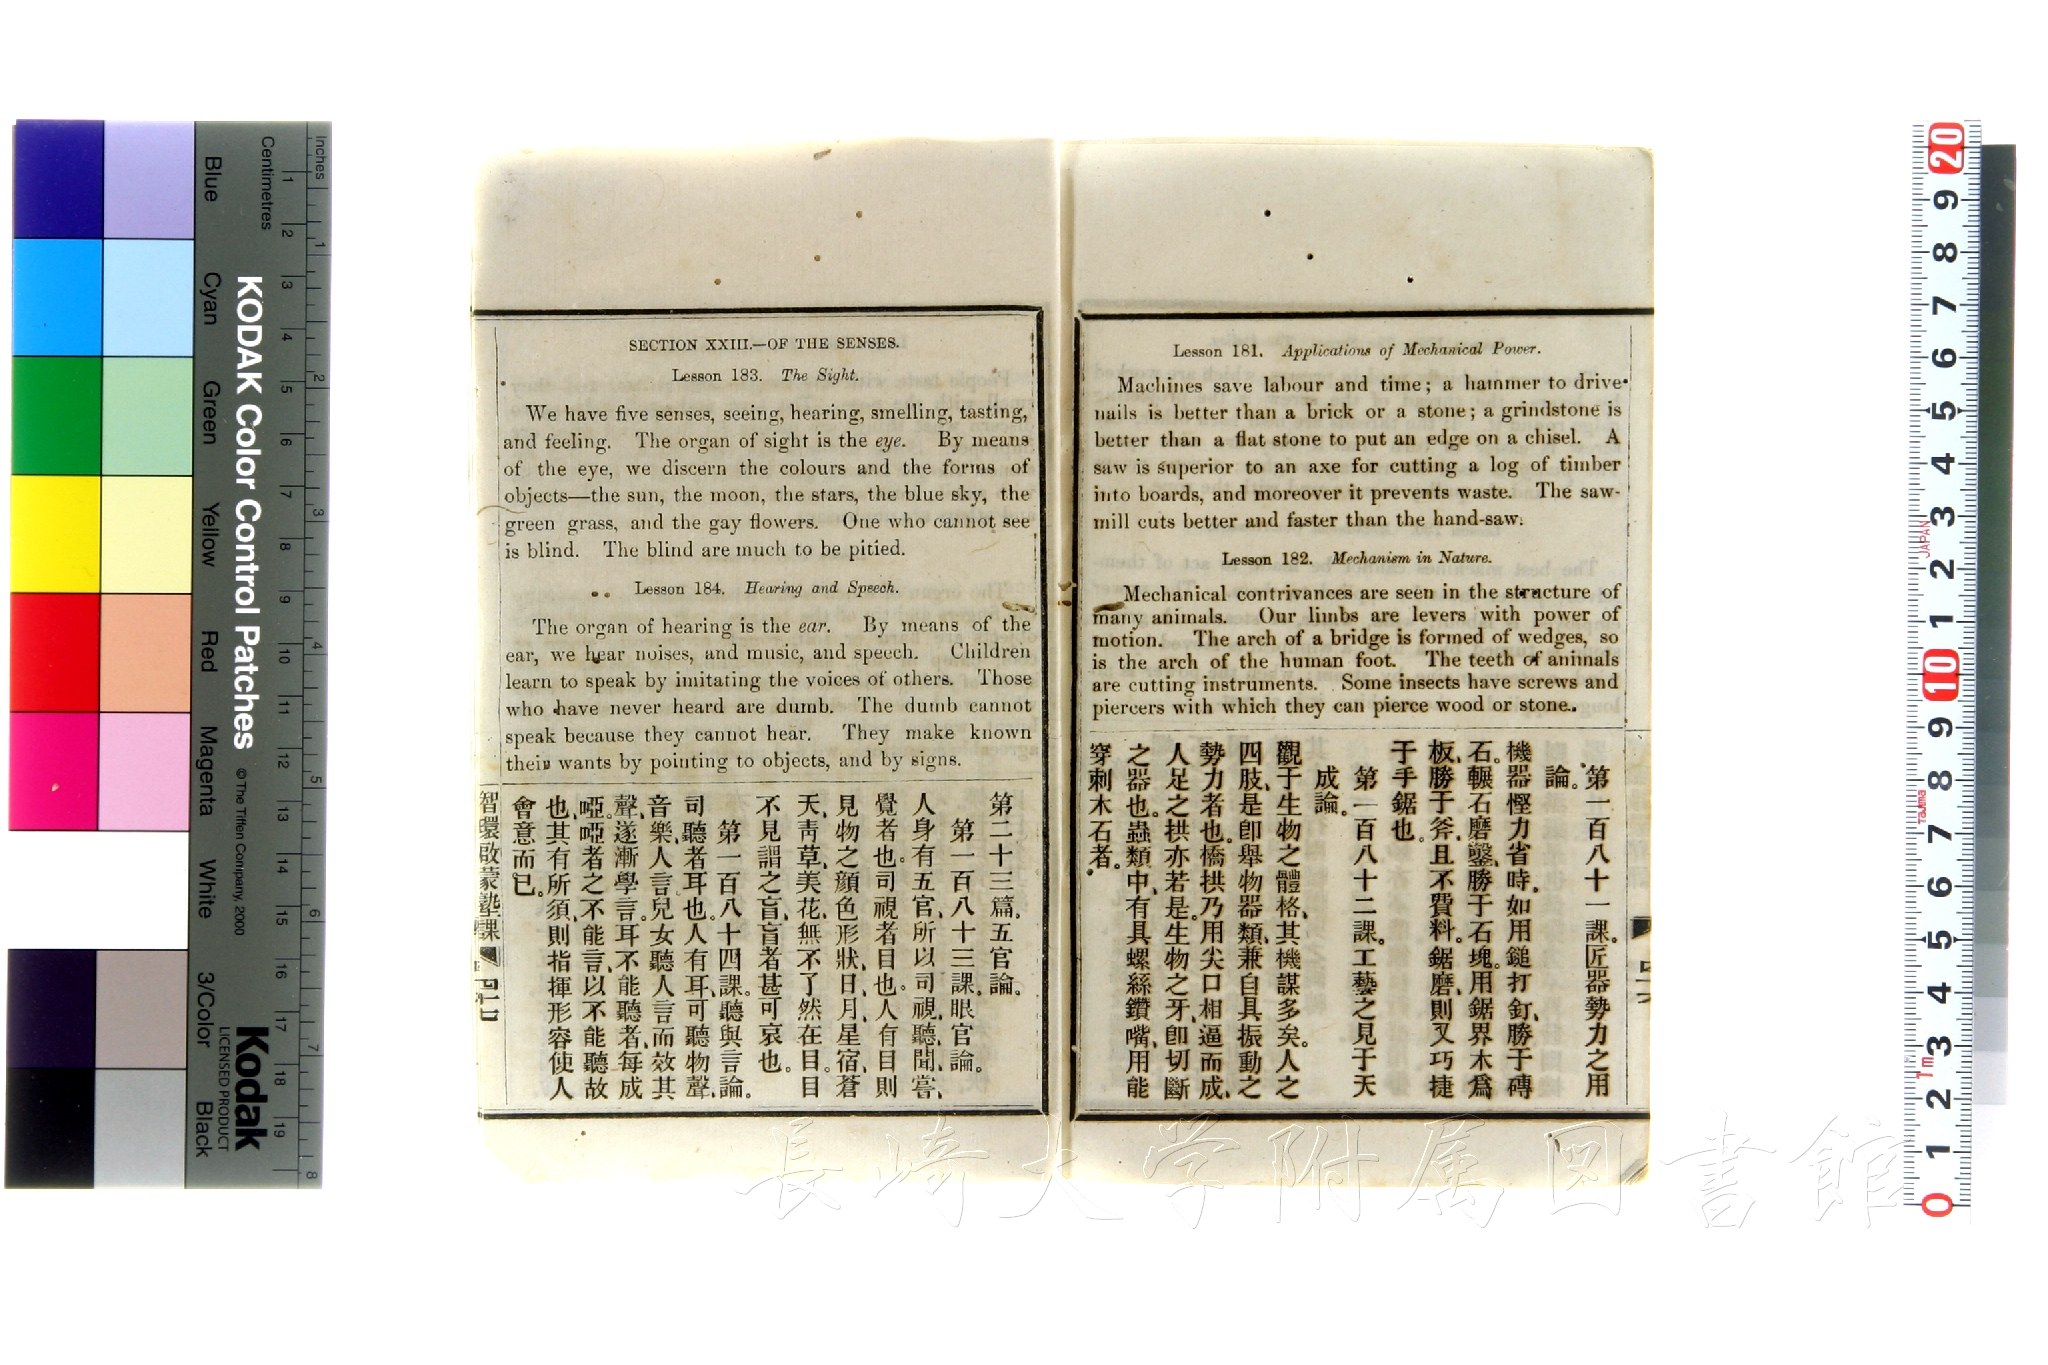 Lesson 181. Applications of Mechanical Power.
Machines save labour and time; a hammer to drive
nails is better than a brick or a stone; a grindstone is
better than a flat stone to put an edge on a chisel. A
saw is superior to an axe for cutting a log of timber
into boards, and moreover it prevents waste. The saw-
mill cuts better and faster than the hand-saw.
Lesson 182. Mechanism in Nature.
Mechanical contrivances are seen in the structure of
many animals. Our limbs are levers with power of
motion. The arch of a bridge is formed of wedges, so
is the arch of the human foot. The teeth of animals
are cutting instruments. Some insects have screws and
piercers with which they can pierce wood or stone.
第一百八十一課。匠器勢力之用
論。
機器慳力省時、如用鎚打釘、勝于磚
石。輾石磨鑿、勝于石塊。用鋸界木爲
板、勝于斧、且不費料。鋸磨、則又巧捷
于手鋸也。
第一百八十二課。工藝之見于天
成論。
觀于生物之體格、其機謀多矣。人之
四肢、是卽舉物器類、兼自具振動之
勢力者也。橋拱乃用尖口相逼而成、
人足之拱亦若是。生物之牙、卽切斷
之器也。蟲類中、有具螺絲鑽嘴、用能
穿刺木石者。
SECTION XXIII.—OF THE SENSES.
Lesson 183. The Sight.
We have five senses, seeing, hearing, smelling, tasting,
and feeling. The organ of sight is the eye. By means
of the eye, we discern the colours and the forms of
objects—the sun, the moon, the stars, the blue sky, the
green grass, and the gay flowers. One who cannot see
is blind. The blind are much to be pitied.
Lesson 184. Hearing and Speech.
The organ of hearing is the ear. By means of the
ear, we hear noises, and music, and speech. Children
learn to speak by imitating the voices of others. Those
who have never heard are dumb. The dumb cannot
speak because they cannot hear. They make known
their wants by pointing to objects, and by signs.
第二十三篇。五官論。
第一百八十三課。眼官論。
人身有五官、所以司視、聽、聞、嘗、
覺者也。司視者目也。人有目則
見物之顔色形狀、日、月、星宿、蒼
天、靑草、美花、無不了然在目。目
不見謂之盲、盲者甚可哀也。
第一百八十四課。聽與言論。
司聽者耳也。人有耳、可聽物聲、
音樂、人言、兒女聽人言而效其
聲、遂漸學言。耳不能聽者、每成
啞。啞者之不能言、以不能聽故
也、其有所須、則指揮形容使人
會意而已。
智環啟蒙塾課
四十七
KODAK Color Control Patches
© The Tiffen Company, 2000
Kodak
LICENSED PRODUCT
Inches
Centimetres
Blue
Cyan
Green
Yellow
Red
Magenta
White
3/Color
Black
1 2 3 4 5 6 7 8 9 10 11 12 13 14 15 16 17 18 19
1 2 3 4 5 6 7 8
20 9 8 7 6 5 4 3 2 1 10 9 8 7 6 5 4 3 2 1 0
JAPAN
Tajima
長崎大学附属図書館